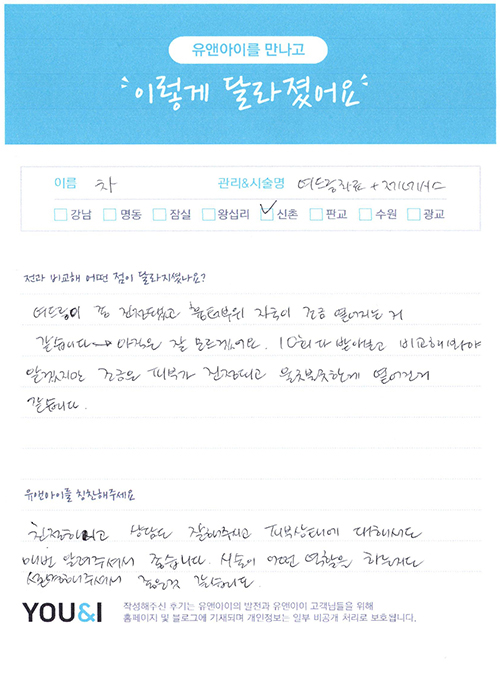 유앤아이를 만나고
이렇게 달라졌어요
이름 차 관리&시술명 여드름치료 + 제네시스
강남 명동 잠실 왕십리 신촌 판교 수원 광교
전과 비교해 어떤 점이 달라지셨나요?
여드름이 좀 진정됐고 흉터부위 자국이 조금 옅어지는 거
같습니다 → 아직은 잘 모르겠어요. 10회 다 받아보고 비교해봐야
알겠지만 조금은 피부가 진정되고 울긋불긋한게 옅어진거
같습니다.
유앤아이를 칭찬해주세요
친절하시고 상담도 잘해주시고 피부상태에 대해서도
매번 알려주셔서 좋습니다. 시술이 어떤 역할을 하는지도
설명해주셔서 좋은것 같습니다.
YOU&I
작성해주신 후기는 유앤아이의 발전과 유앤아이 고객님들을 위해
홈페이지 및 블로그에 기재되며 개인정보는 일부 비공개 처리로 보호됩니다.